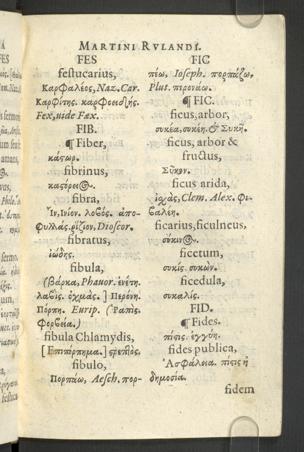 MARTINI RVLANDI.
FES
festucarius,
Καρφαλέος, Naz. Car.
Καρφίτης. καρφοειδής.
Fex, uide Fax.
FIB.
¶ Fiber,
κάστωρ.
fibrinus,
fibra,
Ἴν, Ἰνίον. λοβός. ἀπο-
Φυλλάς. ῥίζιον, Dioscor.
fibratus,
ἰώδης.
fibula,
(βάρκα, Phauor. ἐνέτη.
λαβίς. ὀχμάς. ] Περόνη.
Πόρπη. Eurip. (Ῥαπίς.
Φορβεία.)
fibula Chlamydis,
[ Ἐπιπόρπημα.]
fibulo,
Πορπάω, Aesch. πορ-
FIC
πέω, Ioseph. πορπάζω,
Plut. περονάω.
¶ FIC.
ficus, arbor,
συκέα, συκέη. & Συκῆ.
ficus, arbor &
fructus,
Σῦκον.
ficus arida,
ἰσχὰς, Clem. Alex. Φι-
βαλέη.
ficarius, ficulneus,
ficetum,
συκίς. συκών.
ficedula,
συκαλίς.
FID.
¶ Fides.
πίστις. ἐγγύη.
fides publica,
Ἀσφάλεια. πίστις ἡ
δημοσία.
fidem